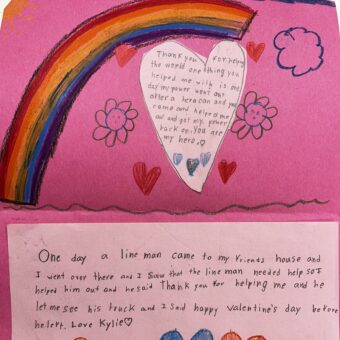 Thank you for helping
the world one thing you
helped me with is one
day my power went out
after a heracan and you
came and helped me
out and got my power
back on. You are
my hero.
One day a line man came to my friends house and
I went over there and I saw that the line man needed help so I
helped him out and he said Thank you for helping me and he
let me see his truck and I said happy valentine's day before
he left. Love Kylie